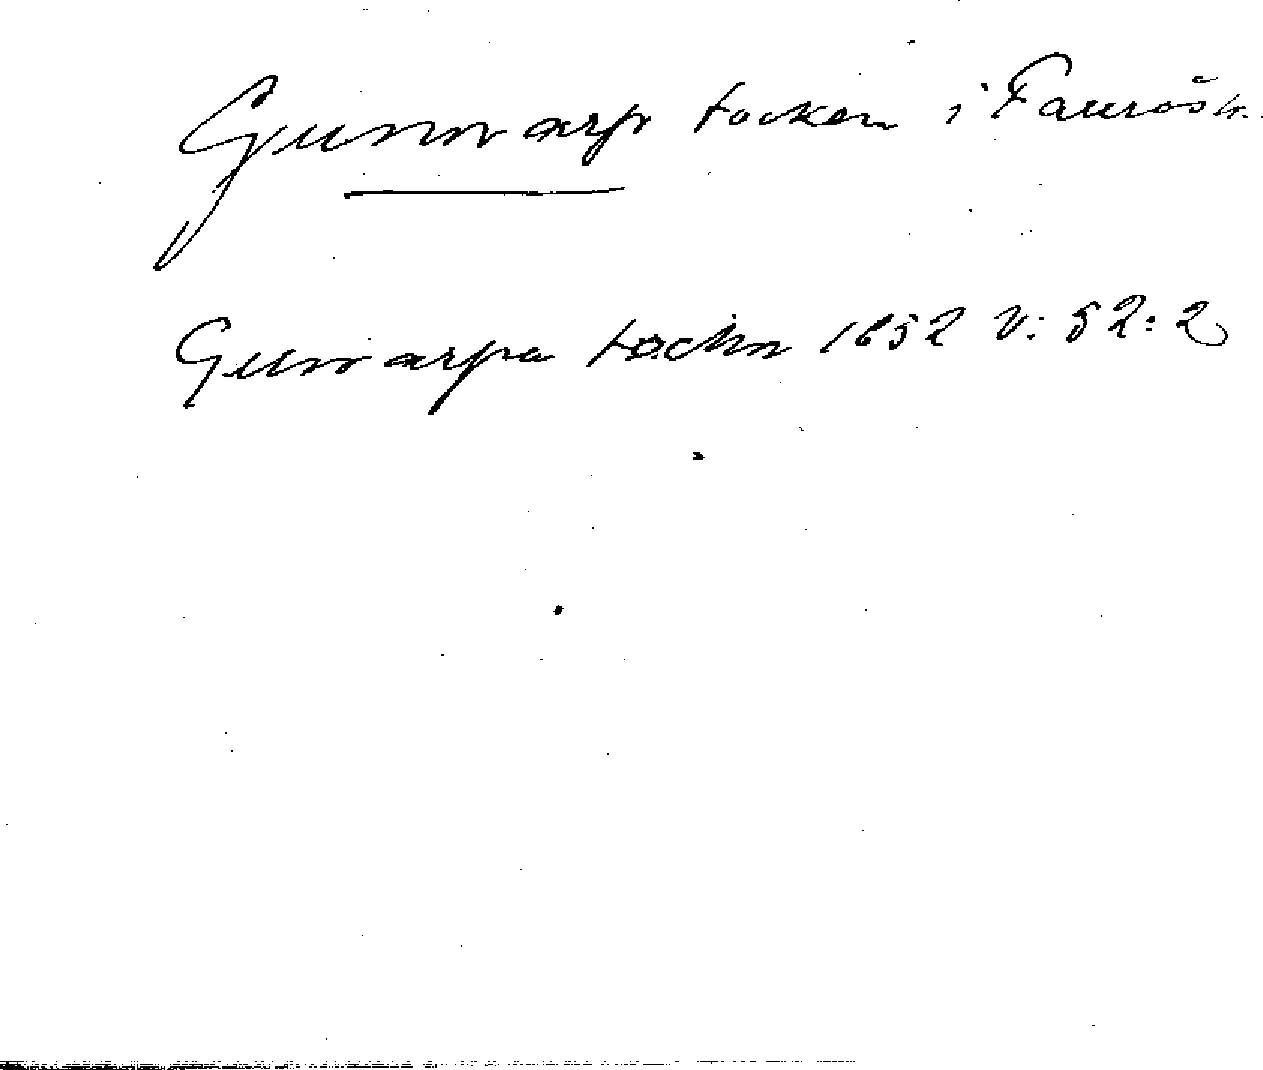 Gunnarp socken i Faurås h.
Gunnarpa sochn 1652 V: 52: 2